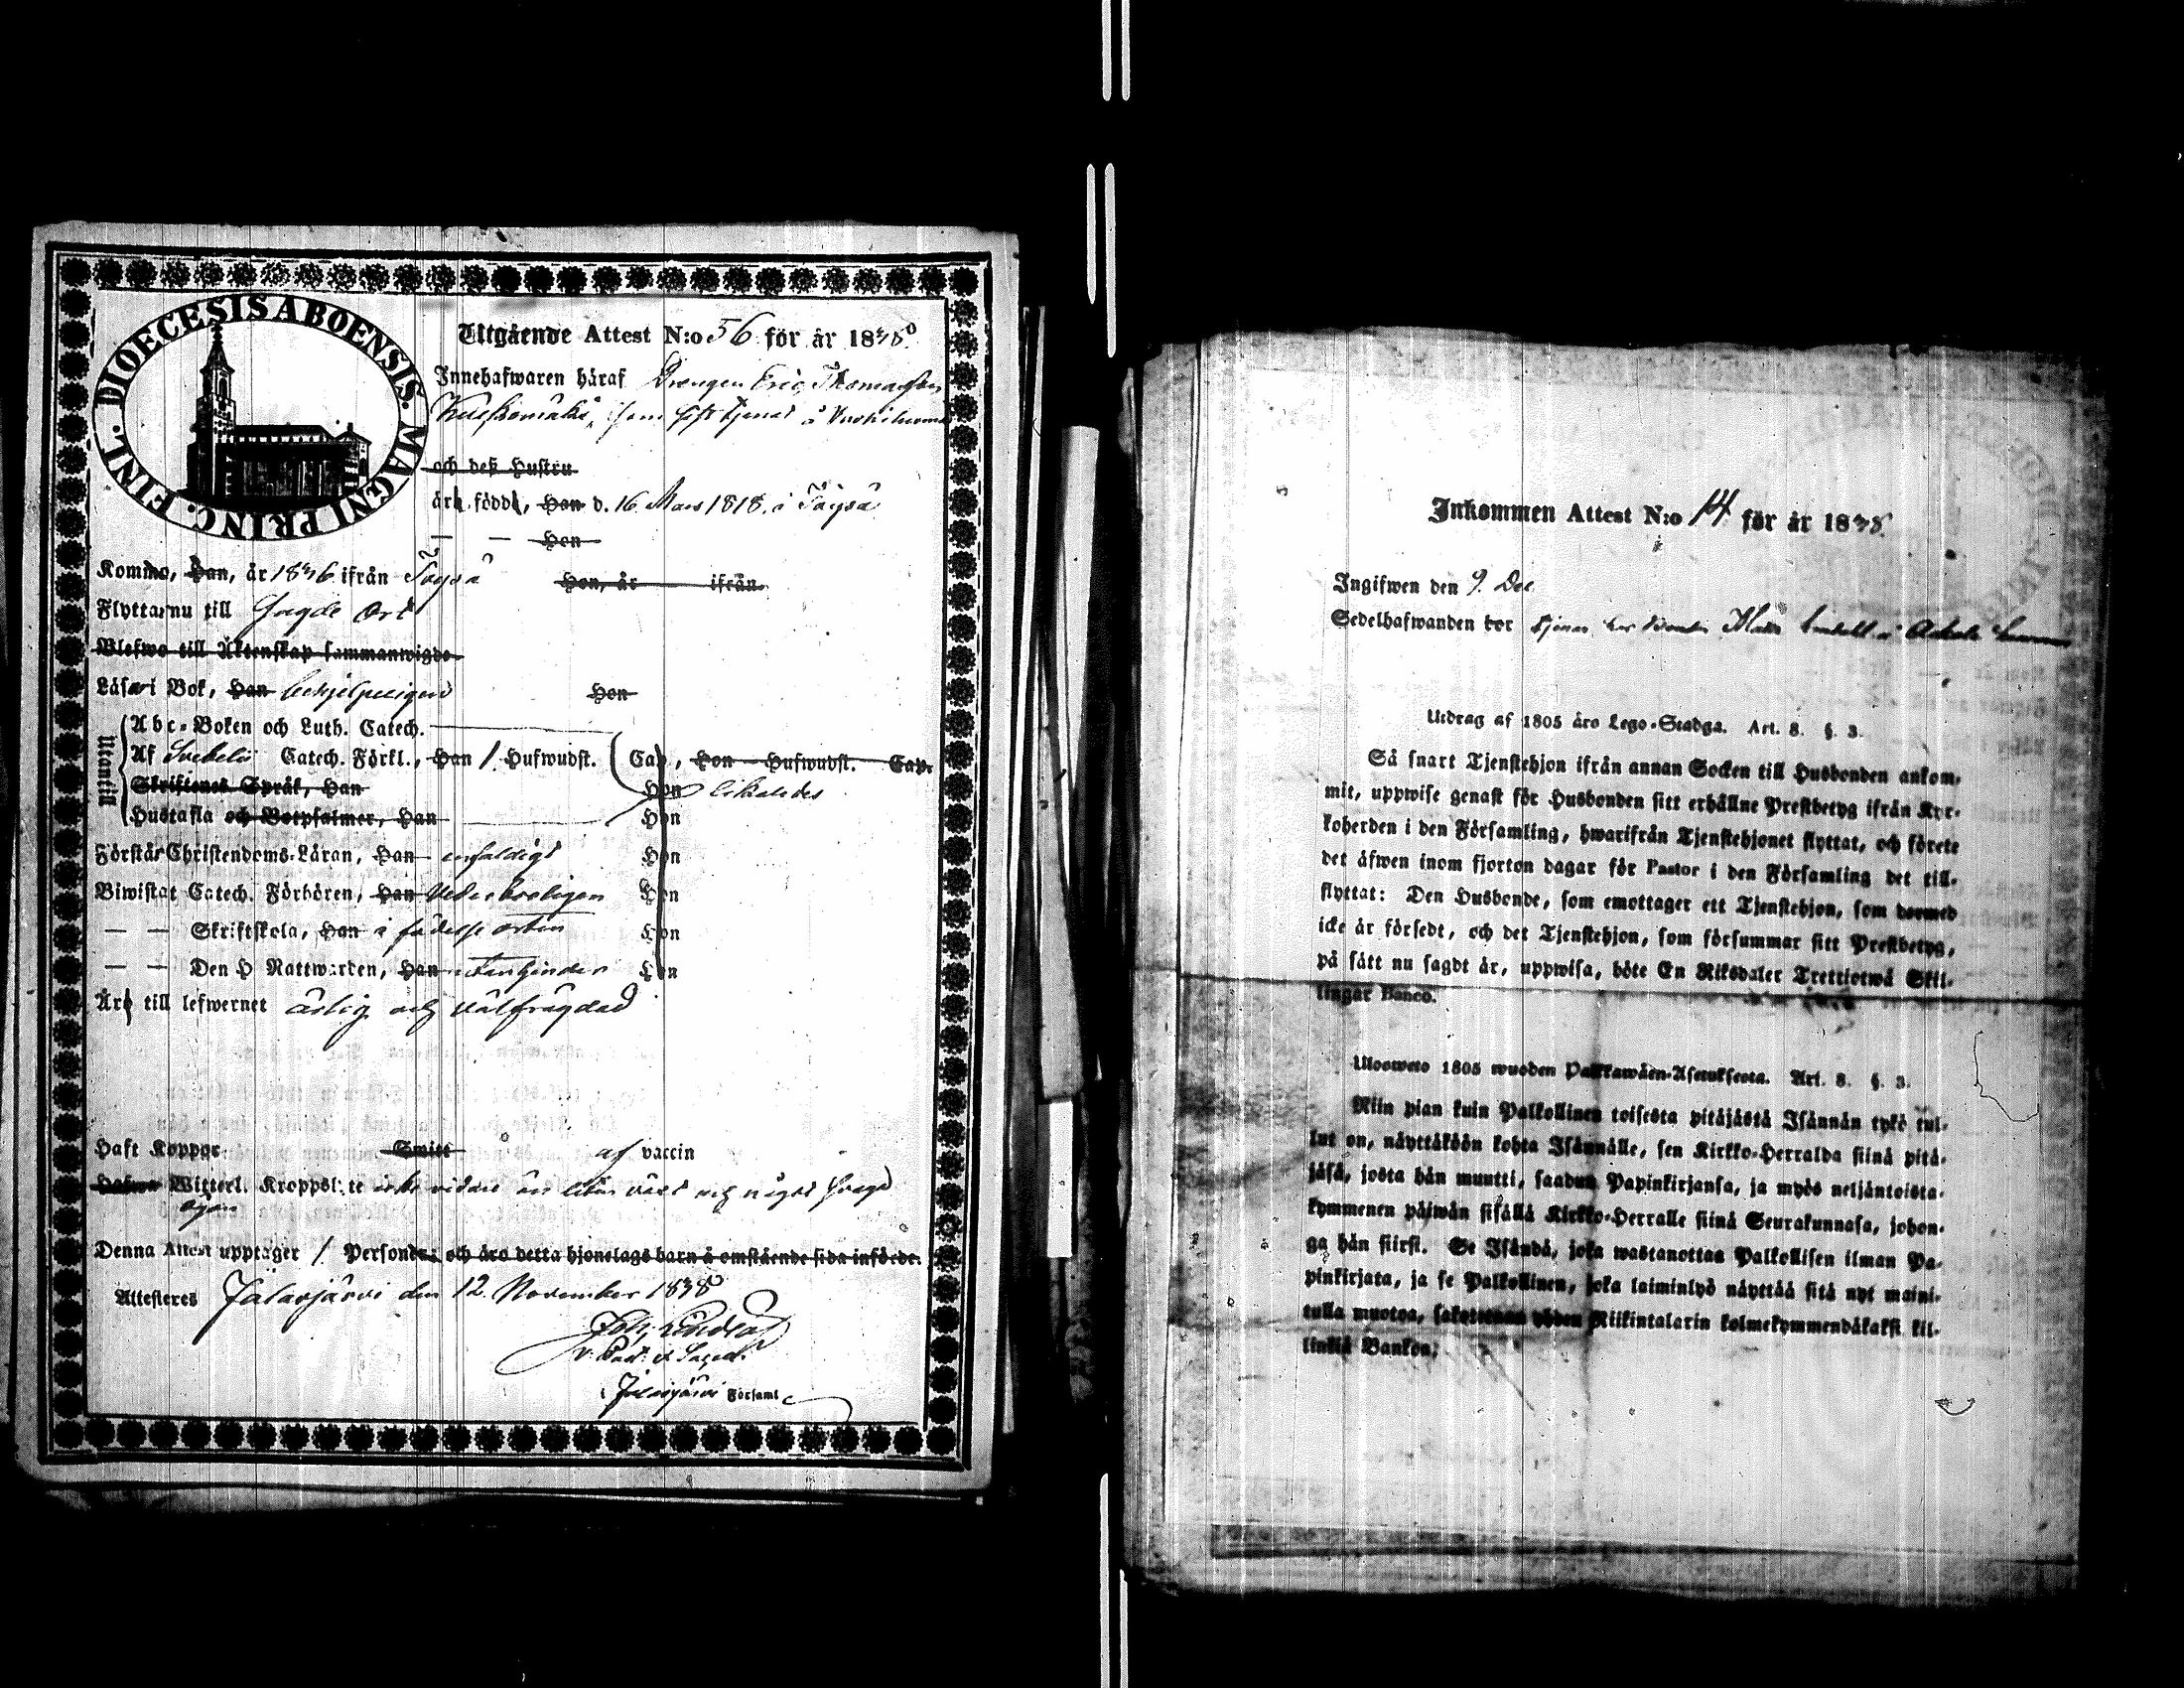 DIOECESIS ABOENSIS. MAGNI PRINC. FINL.
Utgående Attest N:o 56 för år 1838.
Innehafwaren häraf Drengen Eric Thomasson
som sist tjenat å
och deß Hustru
är född, Han d. 16 Mars 1818 i Töysä
— — Hon
Kommo, Han, år 1836 ifrån Töysä Hon, år ifrån
Flyttar nu till Sagde Ort
Blefwo till Äktenskap sammanwigde
Läser i Bok, Han behjelpeligen Hon
Utantill
Abc-Boken och Luth. Catech.
Af Svebelii Catech. Förkl., Han / Hufwudst. Cap., Hon Hufwudst. Cap.
Skriftenes Språk, Han Hon likaledes
Hustafla och Botpsalmer, Han Hon
Förstår Christendoms-Läran, Han enfaldigt Hon
Biwistat Catech. Förhören, Han Hon
— — Skriftskola, Han i födelse orten Hon
— — Den H Nattwarden, Han Hon
Är till lefwernet ärlig och välfrägdad
Haft Koppor Smitt af vaccin
Hafwa Witterl. Kroppslyte icke vidare än liten växt och något svage
ögon
Denna Attest upptager 1 Personer och äro detta hjonelags barn å omstående sida införde.
Attesteres Jalasjärvi den 12 November 1838
V. Past. et Sacell.
i Jalasjärvi Församl
Inkommen Attest N:o 14 för år 1838.
Ingifwen den 9. Dec
Sedelhafwanden bor tjenar hos
Utdrag af 1805 års Lego-Stadga. Art. 8. §. 3.
Så snart Tjenstehjon ifrån annan Socken till Husbonden ankom-
mit, uppwise genast för Husbonden sitt erhållne Prestbetyg ifrån Kyr-
koherden i den Församling, hwarifrån Tjenstehjonet flyttat, och förete
det äfwen inom fjorton dagar för Pastor i den Församling det till-
flyttat: Den Husbonde, som emottager ett Tjenstehjon, som dermed
icke är försedt, och det Tjenstehjon, som försummar sitt Prestbetyg,
på sätt nu sagdt är, uppwisa, böte En Riksdaler Trettiotwå Skil-
lingar Banco.
Ulosweto 1805 wuoden Palkkawäen-Asetuksesta. Art. 8. §. 3.
Niin pian kuin Palkollinen toisesta pitäjästä Isännän tykö tul-
lut on, näyttäköön kohta Isännälle, sen Kirkko-Herralda siinä pitä-
jäsä, josta hän muutti, saadun Papinkirjansa, ja myös neljäntoista-
kymmenen päiwän sisällä Kirkko-Herralle siinä Seurakunnasa, johon-
ga hän siirsi. Se Isändä, joka wastanottaa Palkollisen ilman Pa-
pinkirjata, ja se Palkollinen, joka laiminlyö näyttää sitä nyt maini-
tulla muotoa, sakotetaan yhden Riikintalarin kolmekymmendäkaksi kil-
linkiä Bankoa.